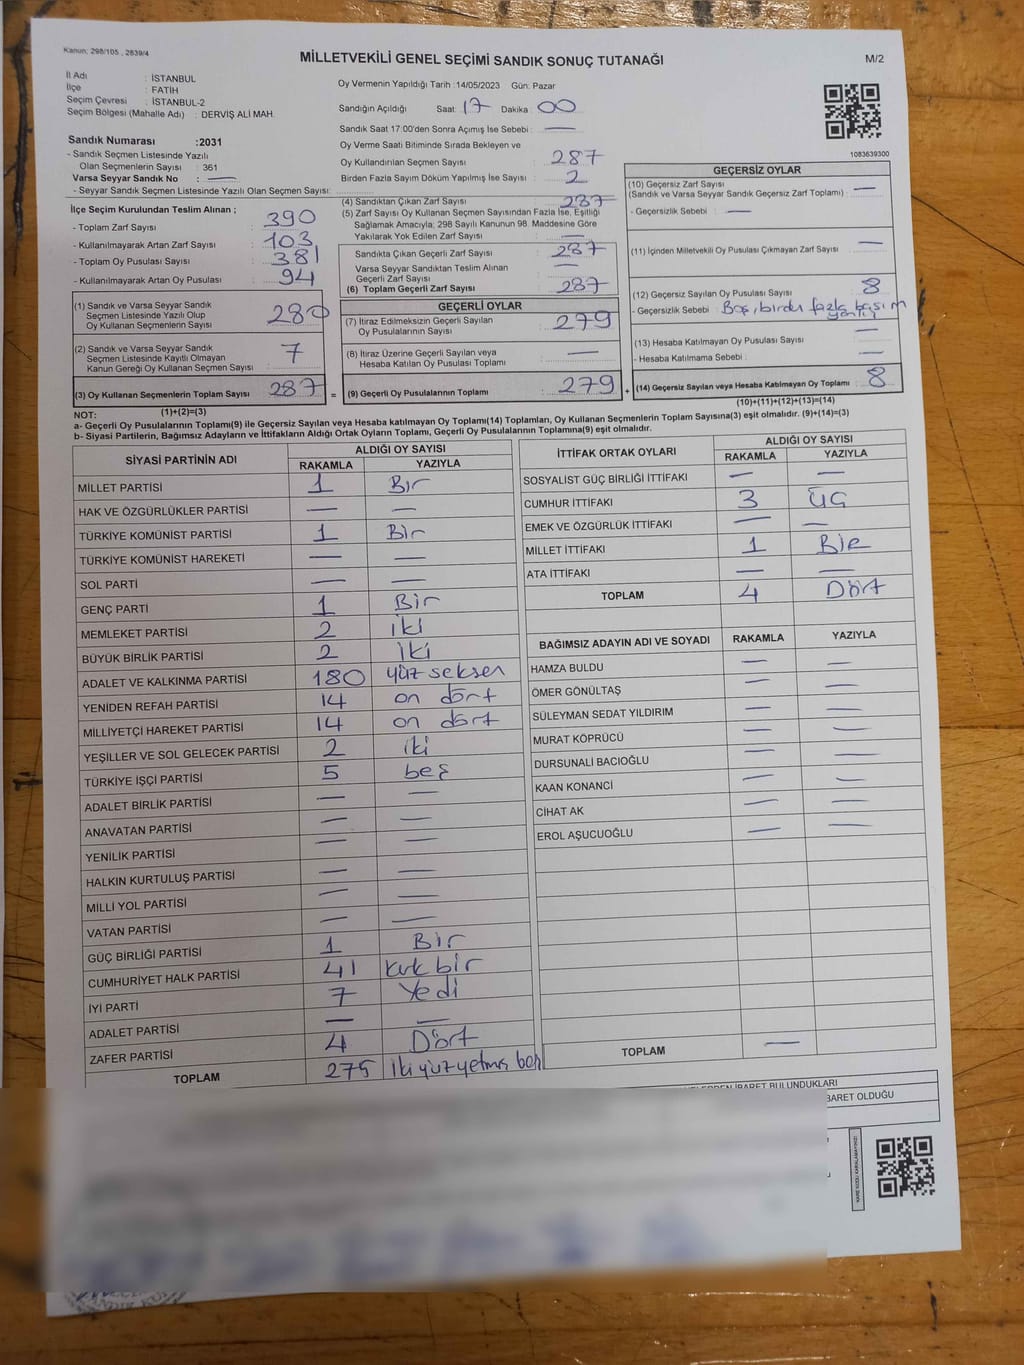 Kanun; 298/105 , 2839/4
MİLLETVEKİLİ GENEL SEÇİMİ SANDIK SONUÇ TUTANAĞI
M/2
İl Adı : İSTANBUL
İlçe : FATİH
Seçim Çevresi : İSTANBUL-2
Seçim Bölgesi (Mahalle Adı) : DERVİŞ ALİ MAH.
Oy Vermenin Yapıldığı Tarih :14/05/2023 Gün: Pazar
Sandığın Açıldığı Saat: 17 Dakika : 00
Sandık Saat 17:00'den Sonra Açımış İse Sebebi : —
Sandık Numarası :2031
- Sandık Seçmen Listesinde Yazılı
Olan Seçmenlerin Sayısı : 361
Varsa Seyyar Sandık No : —
- Seyyar Sandık Seçmen Listesinde Yazılı Olan Seçmen Sayısı:
Oy Verme Saati Bitiminde Sırada Bekleyen ve
Oy Kullandırılan Seçmen Sayısı : 287
Birden Fazla Sayım Döküm Yapılmış İse Sayısı : 2
İlçe Seçim Kurulundan Teslim Alınan ;
- Toplam Zarf Sayısı : 390
- Kullanılmayarak Artan Zarf Sayısı : 103
- Toplam Oy Pusulası Sayısı : 381
- Kullanılmayarak Artan Oy Pusulası : 94
(1) Sandık ve Varsa Seyyar Sandık
Seçmen Listesinde Yazılı Olup
Oy Kullanan Seçmenlerin Sayısı : 280
(2) Sandık ve Varsa Seyyar Sandık
Seçmen Listesinde Kayıtlı Olmayan
Kanun Gereği Oy Kullanan Seçmen Sayısı : 7
(3) Oy Kullanan Seçmenlerin Toplam Sayısı : 287 =
(1)+(2)=(3)
(4) Sandıktan Çıkan Zarf Sayısı : 287
(5) Zarf Sayısı Oy Kullanan Seçmen Sayısından Fazla İse, Eşitliği
Sağlamak Amacıyla; 298 Sayılı Kanunun 98. Maddesine Göre
Yakılarak Yok Edilen Zarf Sayısı : —
Sandıkta Çıkan Geçerli Zarf Sayısı : 287
Varsa Seyyar Sandıktan Teslim Alınan
Geçerli Zarf Sayısı : —
(6) Toplam Geçerli Zarf Sayısı : 287
GEÇERLİ OYLAR
(7) İtiraz Edilmeksizin Geçerli Sayılan
Oy Pusulalarının Sayısı : 279
(8) İtiraz Üzerine Geçerli Sayılan veya
Hesaba Katılan Oy Pusulası Toplamı : —
(9) Geçerli Oy Pusulalarının Toplamı : 279 +
1083639300
GEÇERSİZ OYLAR
(10) Geçersiz Zarf Sayısı
(Sandık ve Varsa Seyyar Sandık Geçersiz Zarf Toplamı) : —
- Geçersizlik Sebebi : —
(11) İçinden Milletvekili Oy Pusulası Çıkmayan Zarf Sayısı : —
(12) Geçersiz Sayılan Oy Pusulası Sayısı : 8
- Geçersizlik Sebebi : Boş, birden fazla basım
(13) Hesaba Katılmayan Oy Pusulası Sayısı : —
- Hesaba Katılmama Sebebi : —
(14) Geçersiz Sayılan veya Hesaba Katılmayan Oy Toplamı : 8
(10)+(11)+(12)+(13)=(14)
NOT:
a- Geçerli Oy Pusulalarının Toplamı(9) ile Geçersiz Sayılan veya Hesaba katılmayan Oy Toplamı(14) Toplamları, Oy Kullanan Seçmenlerin Toplam Sayısına(3) eşit olmalıdır. (9)+(14)=(3)
b- Siyasi Partilerin, Bağımsız Adayların ve İttifakların Aldığı Ortak Oyların Toplamı, Geçerli Oy Pusulalarının Toplamına(9) eşit olmalıdır.
SİYASİ PARTİNİN ADI
ALDIĞI OY SAYISI
RAKAMLA YAZIYLA
MİLLET PARTİSİ 1 Bir
HAK VE ÖZGÜRLÜKLER PARTİSİ — —
TÜRKİYE KOMÜNİST PARTİSİ 1 Bir
TÜRKİYE KOMÜNİST HAREKETİ — —
SOL PARTİ — —
GENÇ PARTİ 1 Bir
MEMLEKET PARTİSİ 2 iki
BÜYÜK BİRLİK PARTİSİ 2 iki
ADALET VE KALKINMA PARTİSİ 180 yüz seksen
YENİDEN REFAH PARTİSİ 14 on dört
MİLLİYETÇİ HAREKET PARTİSİ 14 on dört
YEŞİLLER VE SOL GELECEK PARTİSİ 2 iki
TÜRKİYE İŞÇİ PARTİSİ 5 beş
ADALET BİRLİK PARTİSİ — —
ANAVATAN PARTİSİ — —
YENİLİK PARTİSİ — —
HALKIN KURTULUŞ PARTİSİ — —
MİLLİ YOL PARTİSİ — —
VATAN PARTİSİ — —
GÜÇ BİRLİĞİ PARTİSİ 1 Bir
CUMHURİYET HALK PARTİSİ 41 kırk bir
İYİ PARTİ 7 Yedi
ADALET PARTİSİ — —
ZAFER PARTİSİ 4 Dört
TOPLAM 275 İki yüz yetmiş beş
İTTİFAK ORTAK OYLARI
ALDIĞI OY SAYISI
RAKAMLA YAZIYLA
SOSYALİST GÜÇ BİRLİĞİ İTTİFAKI — —
CUMHUR İTTİFAKI 3 ÜÇ
EMEK VE ÖZGÜRLÜK İTTİFAKI — —
MİLLET İTTİFAKI 1 BİR
ATA İTTİFAKI — —
TOPLAM 4 Dört
BAĞIMSIZ ADAYIN ADI VE SOYADI RAKAMLA YAZIYLA
HAMZA BULDU — —
ÖMER GÖNÜLTAŞ — —
SÜLEYMAN SEDAT YILDIRIM — —
MURAT KÖPRÜCÜ — —
DURSUNALİ BACIOĞLU — —
KAAN KONANCİ — —
CİHAT AK — —
EROL AŞUCUOĞLU — —
TOPLAM —
İBARET BULUNDUKLARI
BARET OLDUĞU